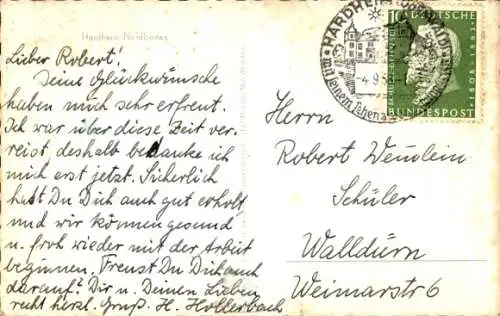 Hardheim-Nordbaden
Lieber Robert!
Deine Glückwünsche
haben mich sehr erfreut.
Ich war über diese Zeit ver-
reist, deshalb bedanke ich
mich erst jetzt. Sicherlich
hast Du Dich auch gut erholt
und wir können gesund
u. froh wieder mit der Arbeit
beginnen. Freust Du Dich auch
darauf? Dir u. Deinen Lieben
recht herzl. Gruß H. Hollerbach
HARDHEIM
mit seinem
-4.9.58-
10
DEUTSCHE
BUNDESPOST
Herrn
Robert Wendlein
Schüler
Walldürn
Weimarstr 6